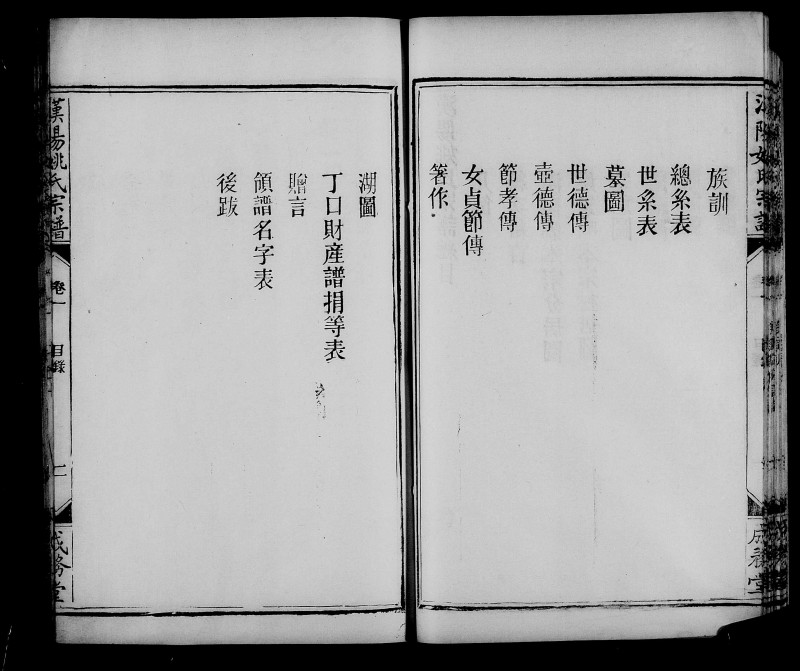 族訓
總系表
世系表
墓圖
世德傳
壺德傳
節孝傳
女貞節傳
箸作
湖圖
丁口財產譜捐等表
贈言
領譜名字表
後跋
漢陽姚氏宗譜
卷一
目錄
二
成務堂